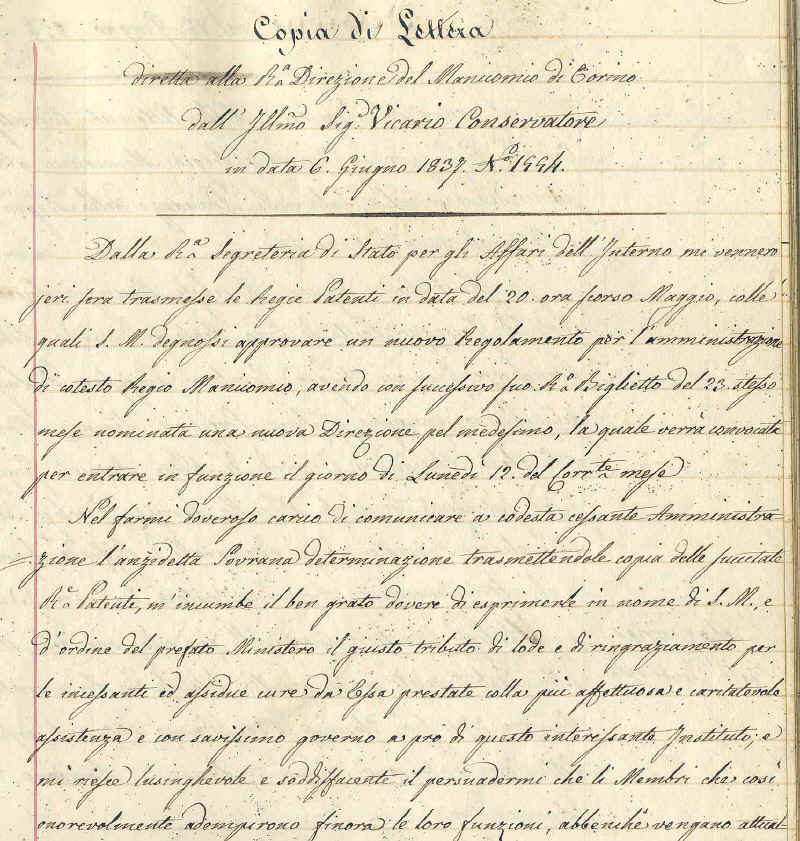 Copia di Lettera
diretta alla R.ª Direzione del Manicomio di Torino
dall' Ill̃mo Sig.r Vicario Conservatore
in data 6. Giugno 1837. N.º 1554.
Dalla R.ª Segreteria di Stato per gli Affari dell' Interno mi vennero
jeri sera trasmesse le Regie Patenti in data del 20. ora scorso Maggio, colle
quali S. M. degnossi approvare un nuovo Regolamento per l'amministrazione
di cotesto Regio Manicomio, avendo con successivo suo R.º Biglietto del 23. stesso
mese nominata una nuova Direzione pel medesimo, la quale verrà convocata
per entrare in funzione il giorno di Lunedì 12. del Corr.te mese
Nel farmi doveroso carico di comunicare a codesta cessante Amministra-
zione l'anzidetta Sovrana determinazione trasmettendole copia delle succitate
R.e Patente, m'incumbe il ben grato dovere di esprimerle in nome di S. M., e
d'ordine del prefato Ministero il giusto tributo di lode e di ringraziamento per
le incessanti ed assidue cure da Essa prestate colla più affettuosa e caritatevole
assistenza e con savissimo governo a pro di questo interessante Instituto; e
mi riesce lusinghevole e soddisfacente il persuadermi che li Membri che così
onorevolmente adempirono finora le loro funzioni, abbenchè vengano attual-